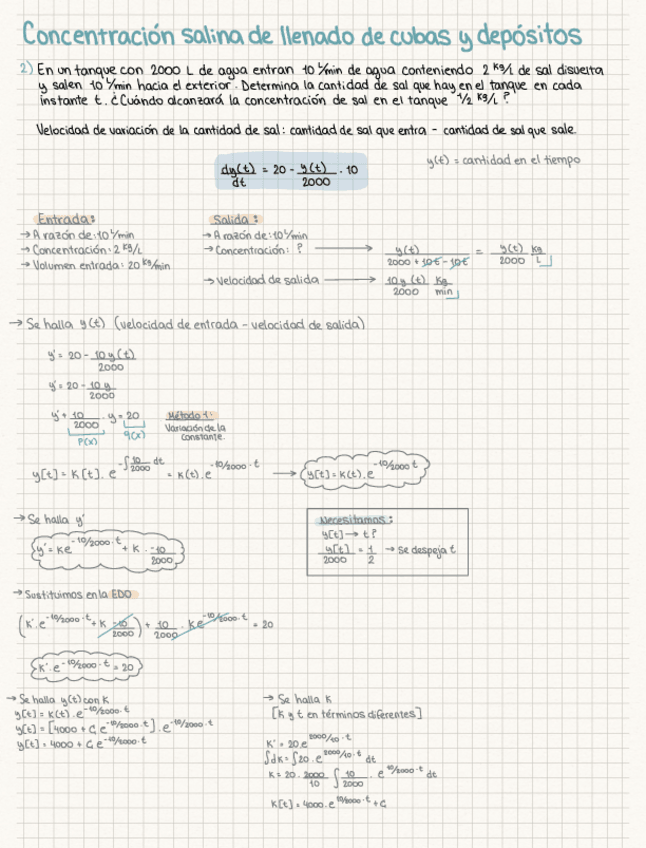 Concentración salina de llenado de cubas y depósitos
2) En un tanque con 2000 L de agua entran 10 L/min de agua conteniendo 2 kg/L de sal disuelta
y salen 10 L/min hacia el exterior. Determina la cantidad de sal que hay en el tanque en cada
instante t. ¿Cuándo alcanzará la concentración de sal en el tanque 1/2 kg/L ?
Velocidad de variación de la cantidad de sal: cantidad de sal que entra - cantidad de sal que sale.
dy(t)/dt = 20 - y(t)/2000 · 10
y(t) = cantidad en el tiempo
Entrada:
→ A razón de: 10 L/min
→ Concentración: 2 kg/L
→ Volumen entrada: 20 kg/min
Salida:
→ A razón de: 10 L/min
→ Concentración: ? → y(t)/(2000 + 10t - 10t) = y(t)/2000 kg/L
→ Velocidad de salida → 10y(t)/2000 kg/min
→ Se halla y(t) (velocidad de entrada - velocidad de salida)
y' = 20 - 10y(t)/2000
y' = 20 - 10y/2000
y' + 10/2000 · y = 20
P(x) q(x)
Método 1:
Variación de la
constante.
y[t] = K[t] · e^(-∫10/2000 dt) = K(t) · e^(-10/2000 · t) → y[t] = K(t) · e^(-10/2000 t)
→ Se halla y'
y' = K e^(-10/2000 · t) + K · -10/2000
Necesitamos:
y[t] → t?
y[t]/2000 = 1/2 → se despeja t
→ Sustituimos en la EDO
(K' · e^(-10/2000 · t) + K -10/2000) + 10/2000 · K e^(-10/2000 · t) = 20
K' · e^(-10/2000 · t) = 20
→ Se halla y(t) con K
y[t] = K(t) · e^(-10/2000 · t)
y[t] = [4000 + C₁ e^(-10/2000 · t)] · e^(-10/2000 · t)
y[t] = 4000 + C₁ e^(-10/2000 · t)
→ Se halla K
[K y t en términos diferentes]
K' = 20 · e^(2000/10 · t)
∫dK = ∫20 · e^(2000/10 · t) dt
K = 20 · 2000/10 ∫ 10/2000 · e^(10/2000 · t) dt
K[t] = 4000 · e^(10/2000 · t) + C₁